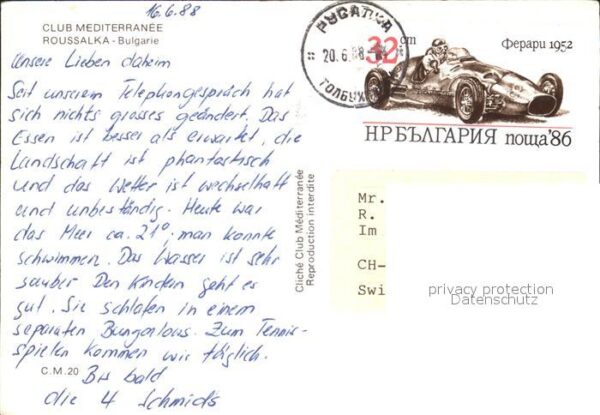 16.6.88
CLUB MEDITERRANÉE
ROUSSALKA - Bulgarie
Unsere Lieben daheim
Seit unserem Telephongespräch hat
sich nichts grosses geändert. Das
Essen ist besser als erwartet, die
Landschaft ist phantastisch
und das Wetter ist wechselhaft
und unbeständig. Heute war
das Meer ca. 21°; man konnte
schwimmen. Das Wasser ist sehr
sauber. Den Kindern geht es
gut. Sie schlafen in einem
separaten Bungalous. Zum Tennis-
spielen kommen wir täglich.
C.M.20
Bis bald
die 4 Schmids
Cliché Club Méditerranée
Reproduction interdite
РУСАЛКА
20.6.88
ТОЛБУХ
32 ст
Ферари 1952
НР БЪЛГАРИЯ поща'86
Mr.
R.
Im
CH-
Swi
privacy protection
Datenschutz